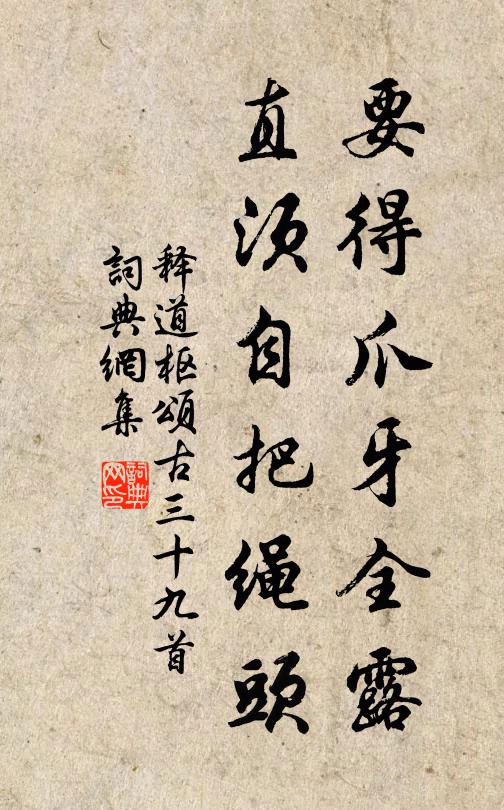 要得爪牙全露
直须自把绳頭
释道枢頌古三十九首
詞典網集
詞典网印